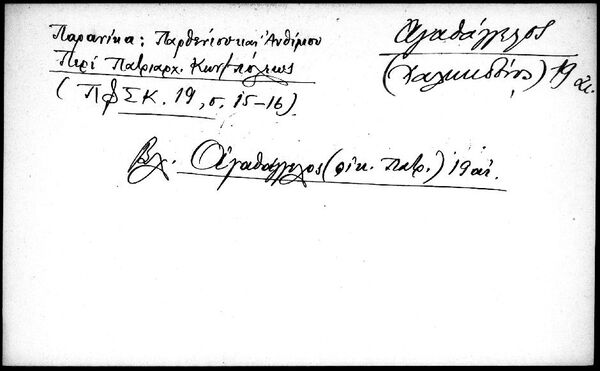 Παρανίκα: Παρθενίου και Ἀνθίμου
Περί Πατριαρχ. Κων/πόλεως
(ΠΦΣΚ. 19, σ. 15-16).
Ἀγαθάγγελος
(Χαλκηδόνος) 19 αἰ.
βλ. Ἀγαθάγγελος (οἰκ. πατρ.) 19 αἰ.